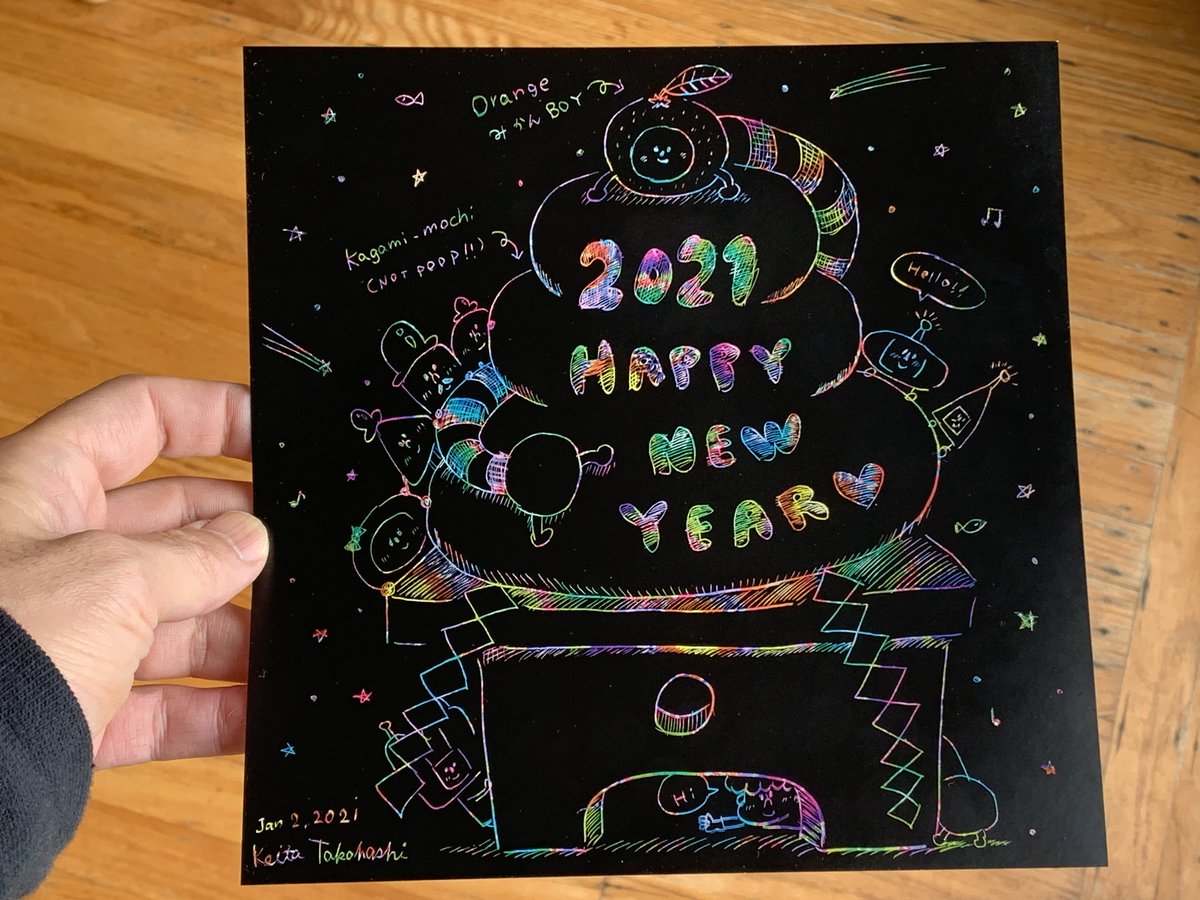 Orange
みかん BOY
Kagami-mochi
(NOT POOP!!)
2021
HAPPY
NEW
YEAR
Hello!!
Hi
Jan 2, 2021
Keita Takahashi